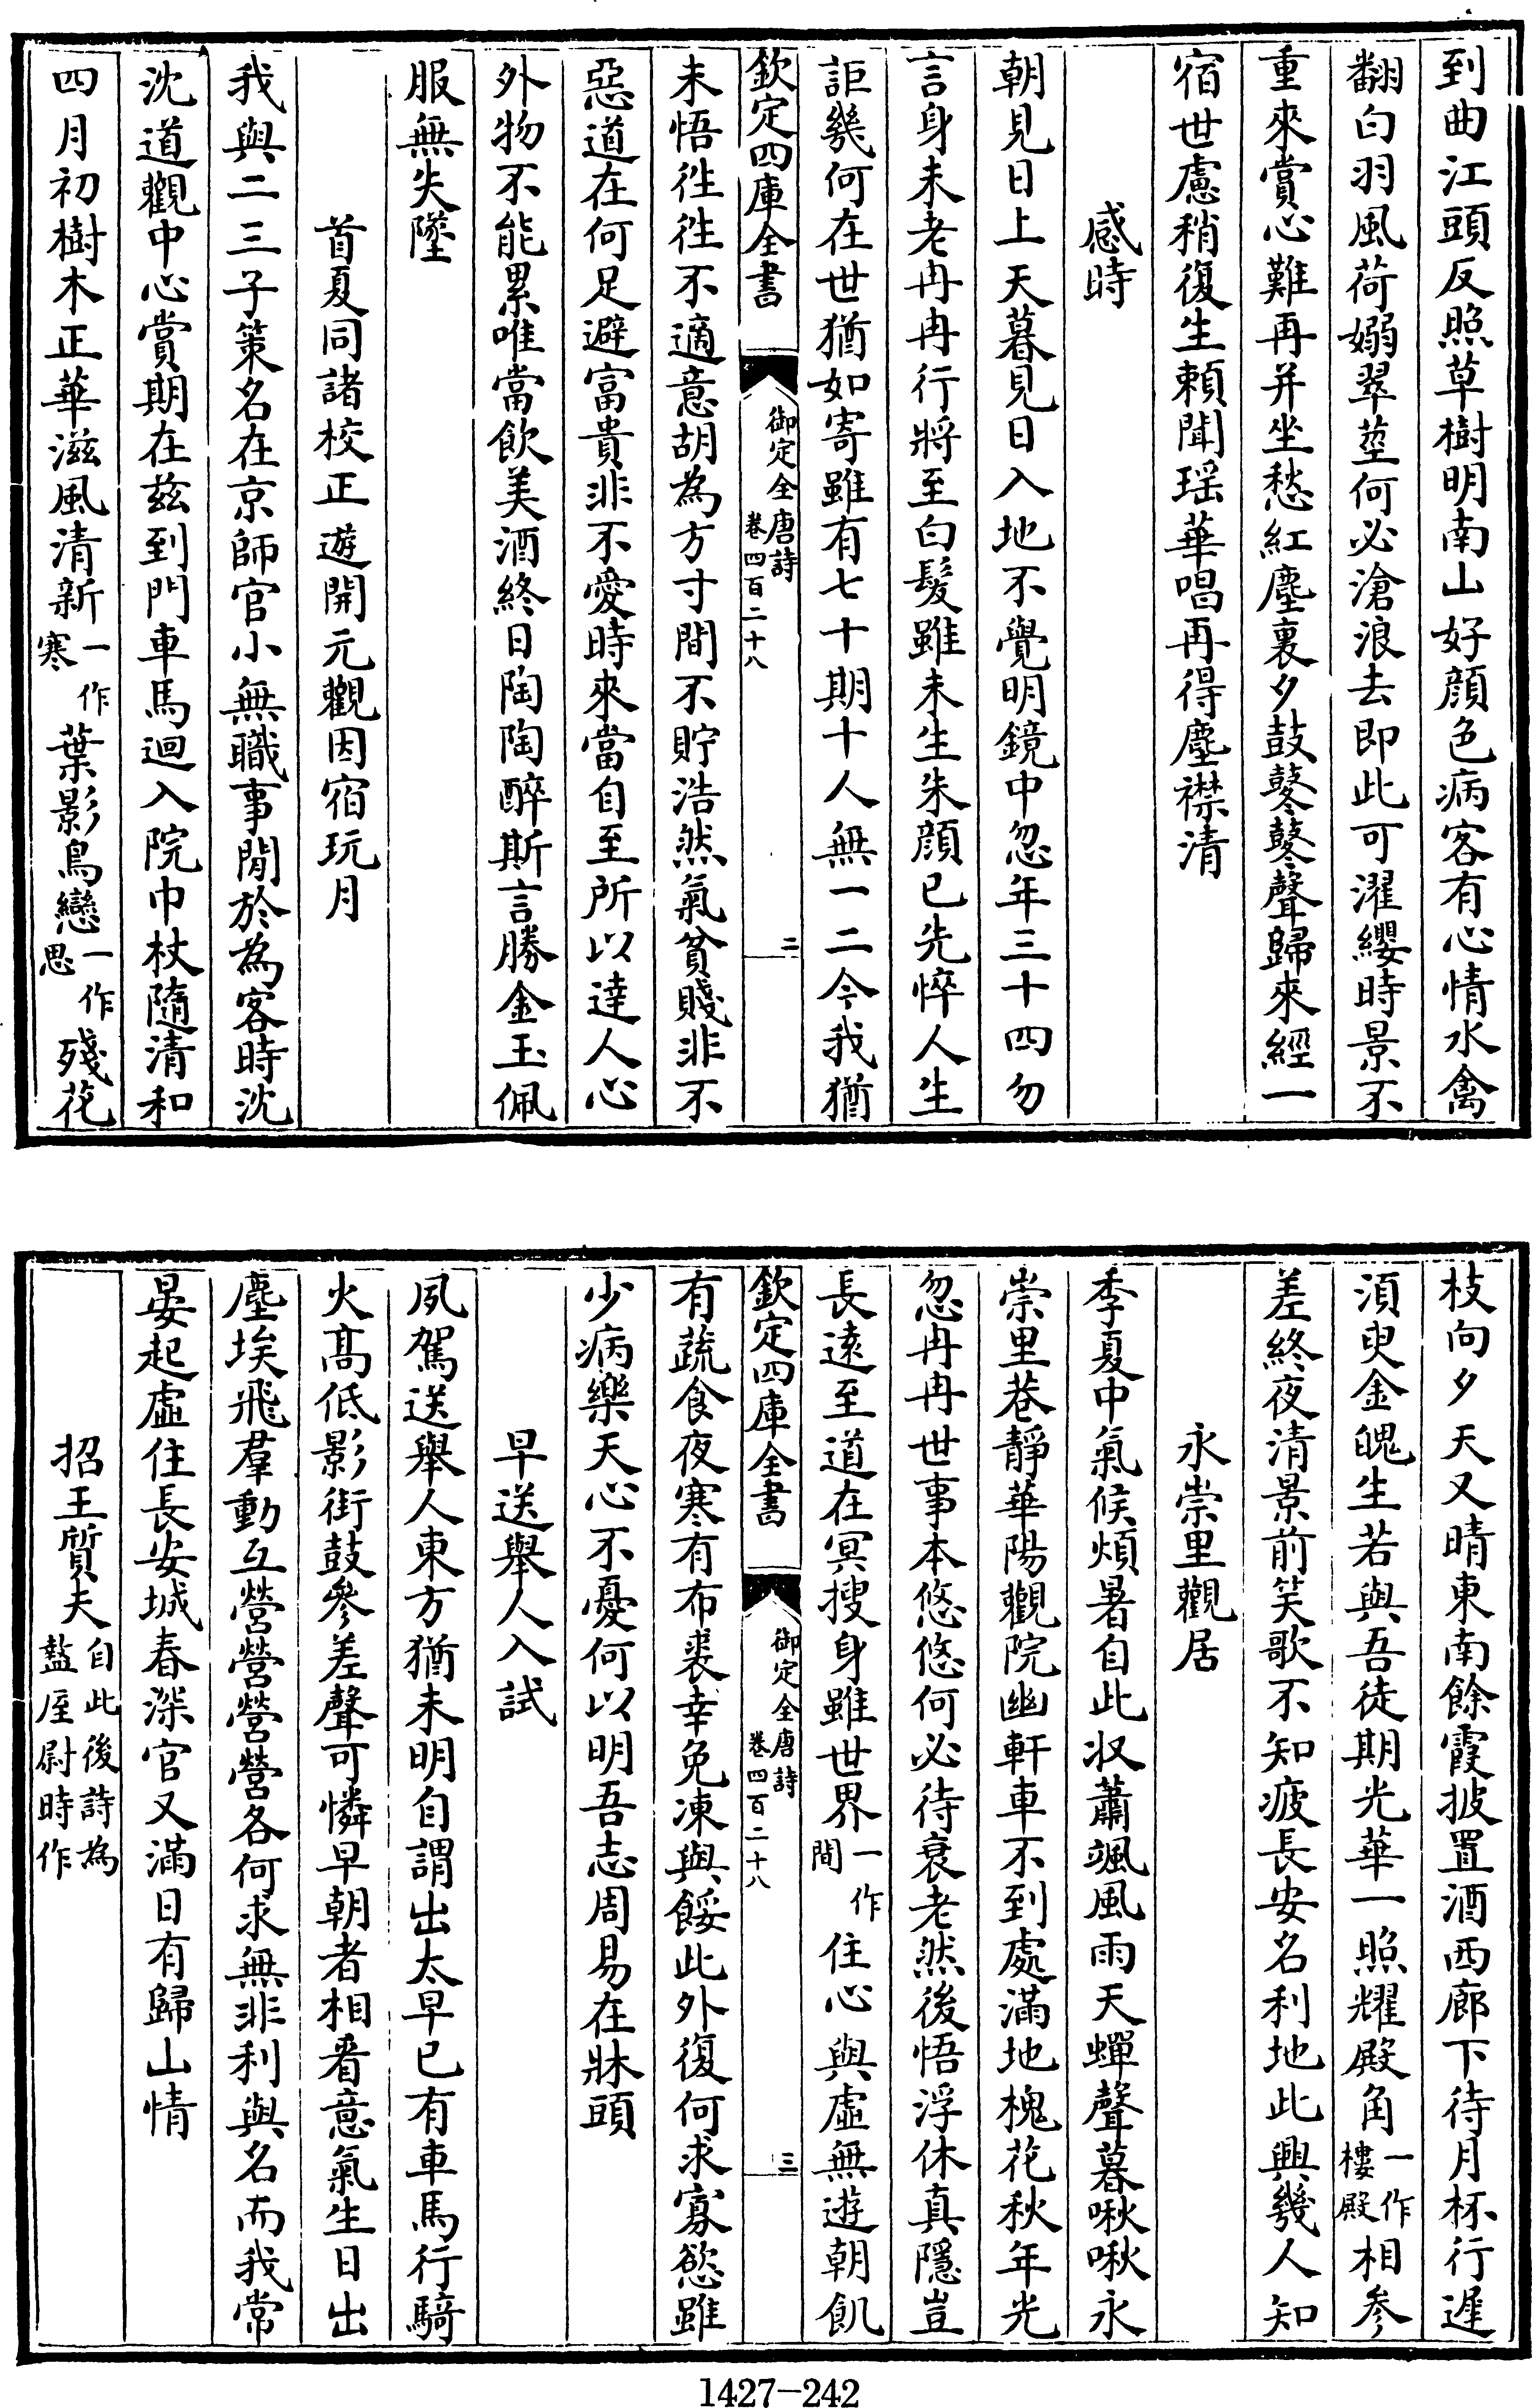 到曲江頭反照草樹明南山好顔色病客有心情水禽
翻白羽風荷嫋翠莖何必滄浪去即此可濯纓時景不
重來賞心難再并坐愁紅塵裏夕鼓鼕鼕聲歸來經一
宿世慮稍復生賴聞瑶華唱再得塵襟清
感時
朝見日上天暮見日入地不覺明鏡中忽年三十四勿
言身未老冉冉行將至白髮雖未生朱顔已先悴人生
詎幾何在世猶如寄雖有七十期十人無一二今我猶
欽定四庫全書 御定全唐詩 卷四百二十八 二
未悟徃徃不適意胡為方寸間不貯浩然氣貧賤非不
惡道在何足避富貴非不愛時來當自至所以逹人心
外物不能累唯當飲美酒終日陶陶醉斯言勝金玉佩
服無失墜
首夏同諸校正遊開元觀因宿玩月
我與二三子策名在京師官小無職事閒於為客時沈
沈道觀中心賞期在兹到門車馬迴入院巾杖隨清和
四月初樹木正華滋風清新一作寒葉影鳥戀一作思殘花
枝向夕天又晴東南餘霞披置酒西廊下待月杯行遲
湏臾金魄生若與吾徒期光華一照耀殿角一作樓殿相參
差終夜清景前笑歌不知疲長安名利地此興幾人知
永崇里觀居
季夏中氣候煩暑自此收蕭颯風雨天蟬聲暮啾啾永
崇里巷靜華陽觀院幽軒車不到處滿地槐花秋年光
忽冉冉世事本悠悠何必待衰老然後悟浮休真隱豈
長遠至道在冥搜身雖世界一作間住心與虛無遊朝飢
欽定四庫全書 御定全唐詩 卷四百二十八 三
有蔬食夜寒有布裘幸免凍與餒此外復何求寡慾雖
少病樂天心不憂何以明吾志周易在牀頭
早送舉人入試
夙駕送舉人東方猶未明自謂出太早已有車馬行騎
火髙低影街鼓參差聲可憐早朝者相看意氣生日出
塵埃飛羣動互營營營營各何求無非利與名而我常
晏起虛住長安城春深官又滿日有歸山情
招王質夫自此後詩為盩厔尉時作
1427—242